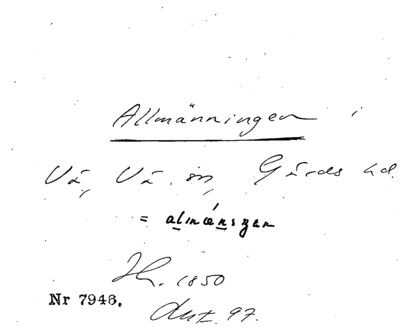 Allmänningen i
Vä, Vä sn, Gärds hd.
= almænıngen
H. 1850
Nr 7946. Ant. 97.